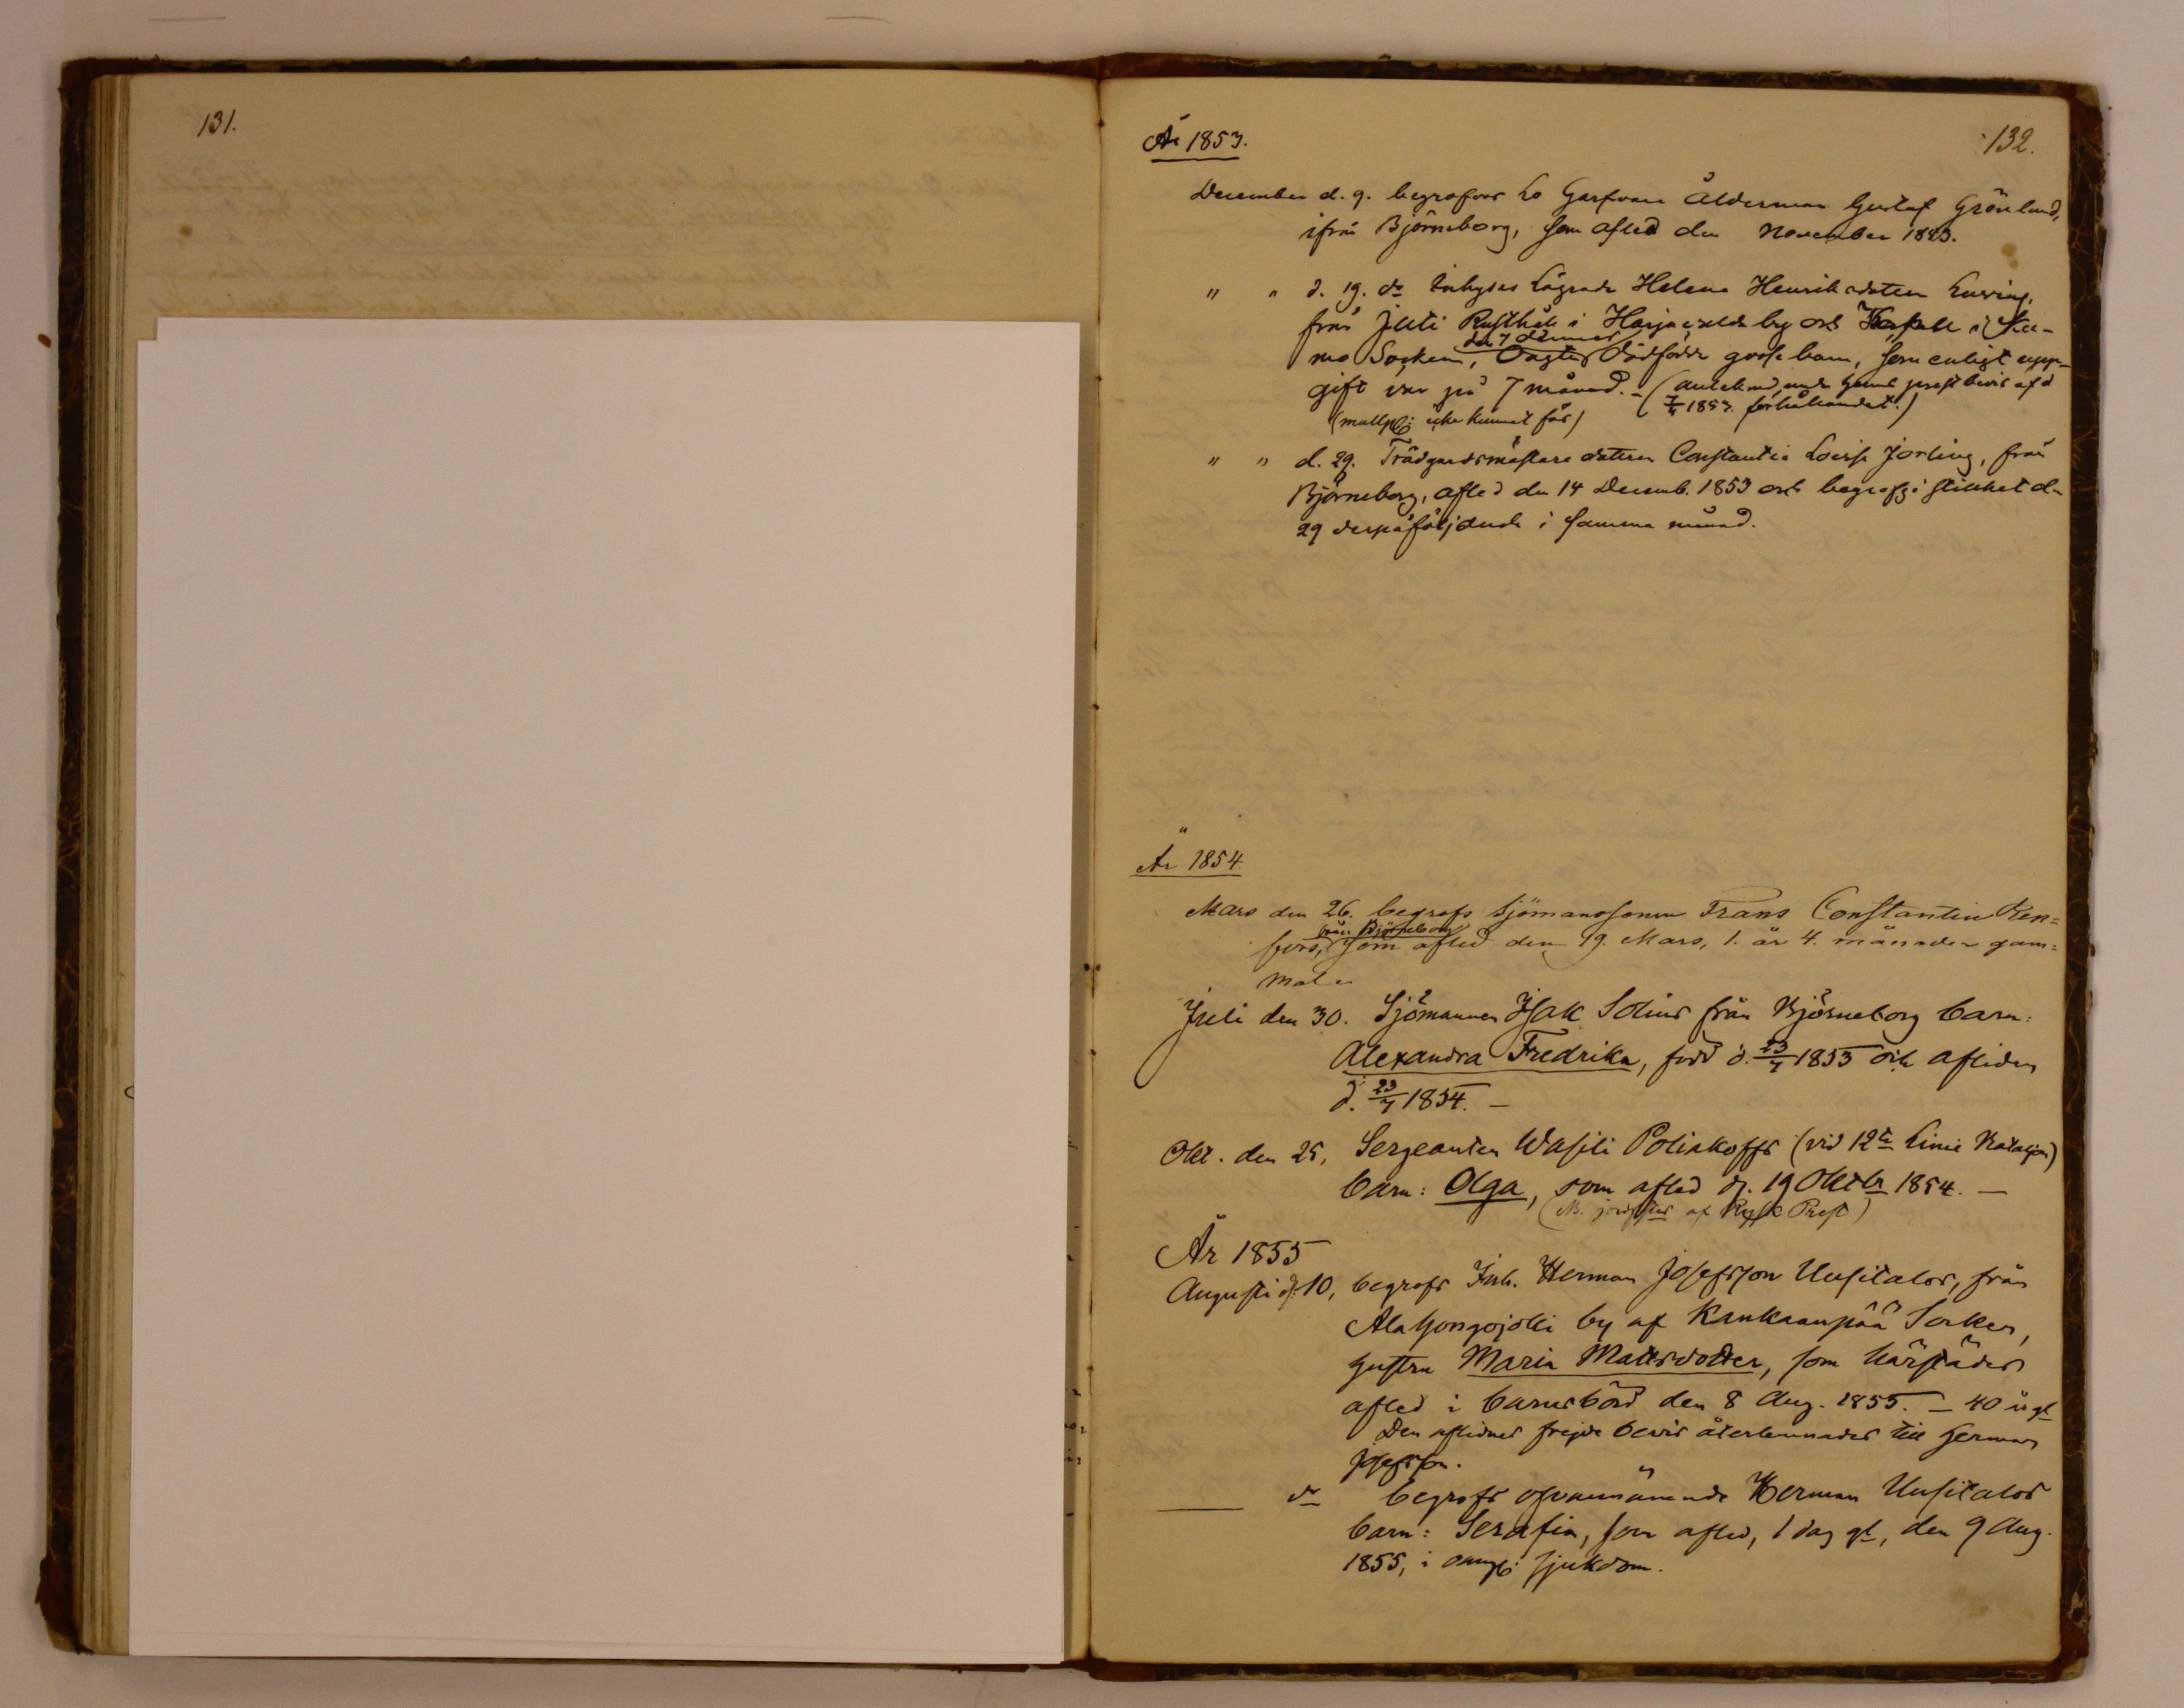 131.
132.
År 1853.
December d. 9. begrofvos Garfvare Ålderman Gustaf Grönlund,
ifrån Björneborg, som afled den November 1853.
" " d. 19. do Inhyses Helena Henriksdotter
från Juti Rusthåll i Harjavalda by och Kapell i Ku-
den 7 dennes
mo Socken, dödfödde gosse barn, som enligt upp-
gift var på 7 månad. –
7/ 1853.
icke kunnat fås)
" " d. 29. Trädgårdsmästare dottren Constantia Lovisa Jorling, från
Björneborg, afled den 14 Decemb. 1853 och d.
29 derpåföljande i samma månad.
År 1854
Mars den 26. begrofs Sjömanssonen Frans Constantin Ren=
från Björneborg
fors, som afled den 19. Mars, 1. år 4. månader gam=
mal
Juli den 30. Sjömannen Isak Solins från Björneborg barn:
Alexandra Fredrika, född d. 23/4 1853 och afliden
d. 23/7 1854. –
Okt. den 25, Sergeanten Wasili Poliakoffs (vid 12te Linie Bataljon)
barn: Olga, som afled d. 19 Oktbr 1854. –
(NB. af Rysk Prest)
År 1855
Augusti d. 10, begrofs Inh. Herman Josefsson Uusitalos, från
Alahongojoki by af Kankaanpää Socken,
hustru Maria Mattsdotter, som härstädes
afled i barnsbörd den 8 Aug. 1855. – 40 år gl
Den aflidnes frejde bevis återlemnades till Herman
Josefsson.
——— do begrofs ofvannämnde Herman Uusitalos
barn: Serafia, som afled, 1 dag gl, den 9 Aug.
1855, i sjukdom.